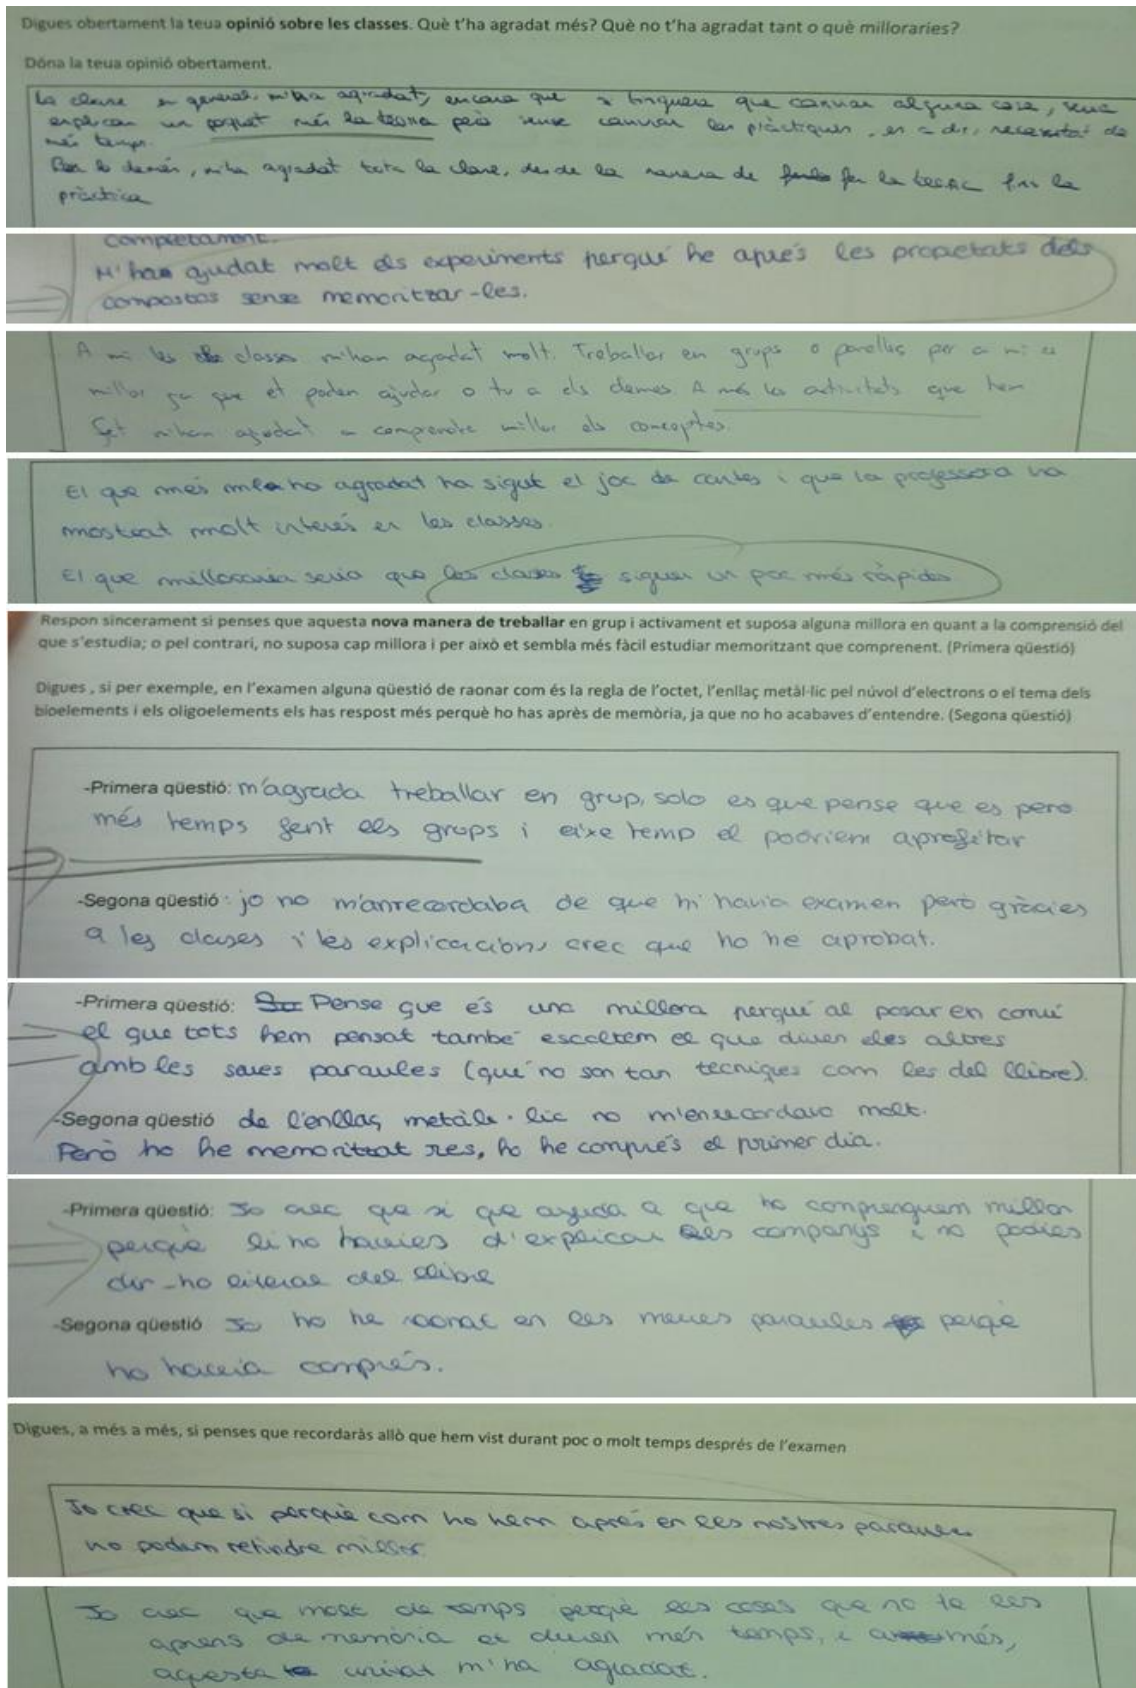 Digues obertament la teua opinió sobre les classes. Què t'ha agradat més? Què no t'ha agradat tant o què milloraries?
Dóna la teua opinió obertament.
La classe en general m'ha agradat, encara que si tinguera que canviar alguna cosa, seria
explicar un poquet més la teoria però sense canviar les pràctiques, es a dir, necessitat de
més temps.
Per lo demés, m'ha agradat tota la classe, desde la manera de fer la teoria fins la
pràctica
Completament.
M'han ajudat molt els experiments perquè he aprés les propietats dels
compostos sense memoritzar-les.
A mi les classes m'han agradat molt. Treballar en grups o parelles per a mi es
millor ja que et poden ajudar o tu a els demes. A més les activitats que hem
fet m'han ajudat a comprendre millor els conceptes.
El que més m'ha agradat ha sigut el joc de cartes i que la professora ha
mostrat molt interés en les classes.
El que milloraria seria que les clases siguen un poc més ràpides
Respon sincerament si penses que aquesta nova manera de treballar en grup i activament et suposa alguna millora en quant a la comprensió del
que s'estudia; o pel contrari, no suposa cap millora i per això et sembla més fàcil estudiar memoritzant que comprenent. (Primera qüestió)
Digues , si per exemple, en l'examen alguna qüestió de raonar com és la regla de l'octet, l'enllaç metàl·lic pel núvol d'electrons o el tema dels
bioelements i els oligoelements els has respost més perquè ho has après de memòria, ja que no ho acabaves d'entendre. (Segona qüestió)
-Primera qüestió: m'agrada treballar en grup, solo es que pense que es perd
més temps fent els grups i eixe temp el podriem aprofitar
-Segona qüestió: jo no m'anrecordaba de que hi havia examen però gràcies
a les clases i les explicacions crec que ho he aprobat.
-Primera qüestió: Pense que és una millora perquè al posar en comú
el que tots hem pensat també escoltem el que diuen els altres
amb les seues paraules (que no son tan tecniques com les del llibre).
-Segona qüestió de l'enllaç metàl·lic no m'enrecordava molt.
Però no he memoritzat res, ho he comprés el primer dia.
-Primera qüestió: Jo crec que si que ajuda a que ho comprenguem millor
perquè li ho havies d'explicar als companys i no podies
dir-ho literal del llibre
-Segona qüestió Jo ho he raonat en les meues paraules perquè
ho havia comprés.
Digues, a més a més, si penses que recordaràs allò que hem vist durant poc o molt temps després de l'examen
Jo crec que si perquè com ho hem aprés en les nostres paraules
ho podem retindre millor.
Jo crec que molt de temps perquè les coses que no te les
aprens de memòria et duren més temps, i a més,
aquesta unitat m'ha agradat.